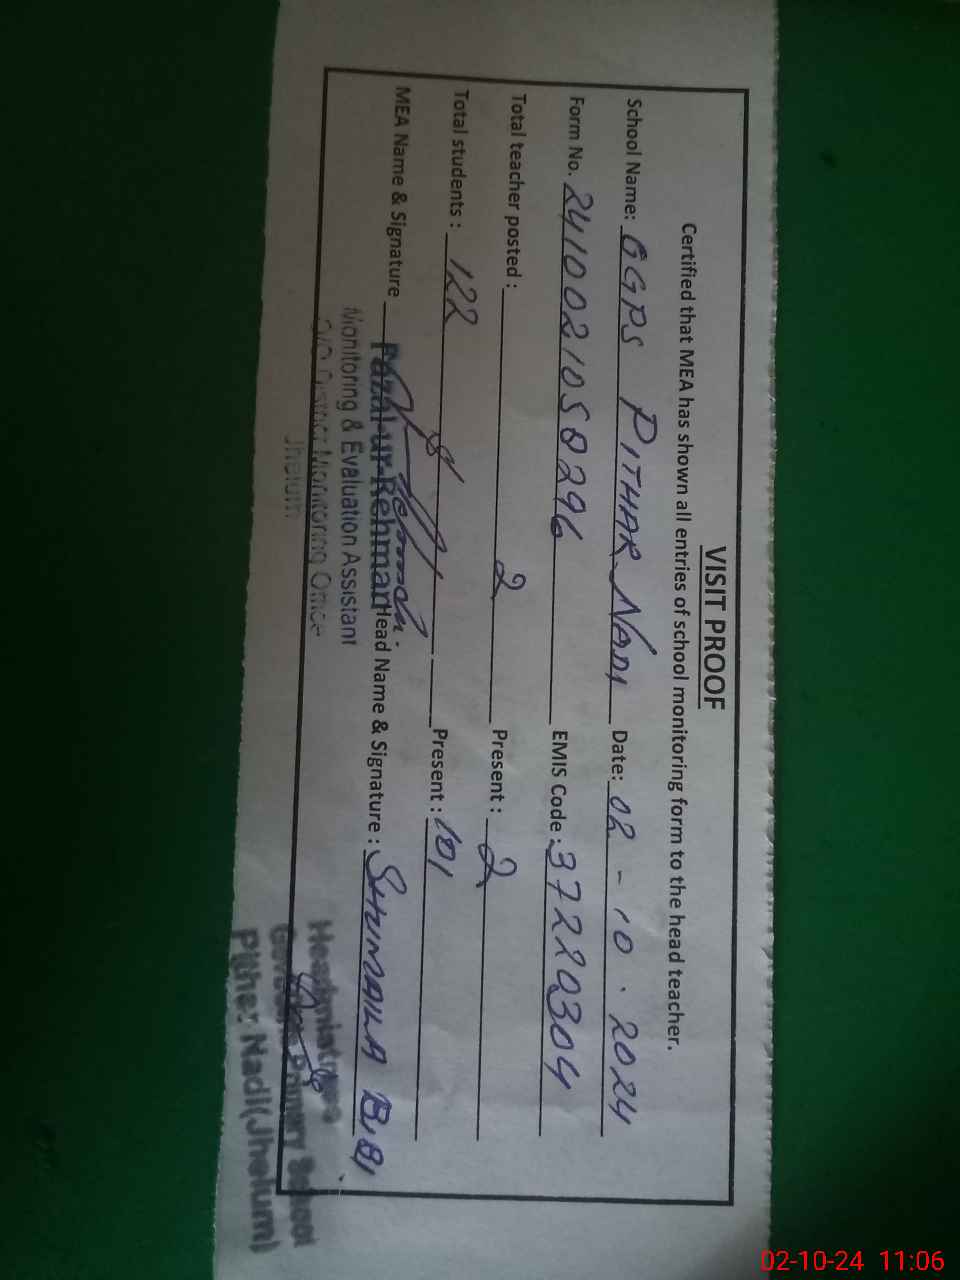 VISIT PROOF
Certified that MEA has shown all entries of school monitoring form to the head teacher.
School Name: GGPS PITHAR NADI Date: 02-10.2024
Form No. 2410021050296 EMIS Code: 37220304
Total teacher posted: 2 Present: 2
Total students: 122 Present: 101
MEA Name & Signature Fazal-ur-Rehman Head Name & Signature: SHUMAILA BIBI
Monitoring & Evaluation Assistant
O/O District Monitoring Office
Jhelum
Headmistress
Primary School
Pither Nadi(Jhelum)
02-10-24 11:06